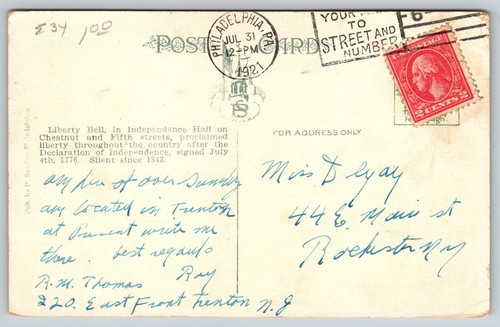 E34 1.00
POST CARD
PHILADELPHIA, PA.
JUL 31
12-PM
1921
YOUR
TO
STREET AND
NUMBER
2 CENTS 2
Liberty Bell, in Independence Hall on
Chestnut and Fifth streets, proclaimed
liberty throughout the country after the
Declaration of Independence, signed July
4th, 1776. Silent since 1842.
FOR ADDRESS ONLY
of over Sunday
am located in Trenton
at Present write me
there. best regards
Ray
R. M. Thomas
220 East Front Trenton N.J
Miss D
44 E. Main st
Rochester Ny